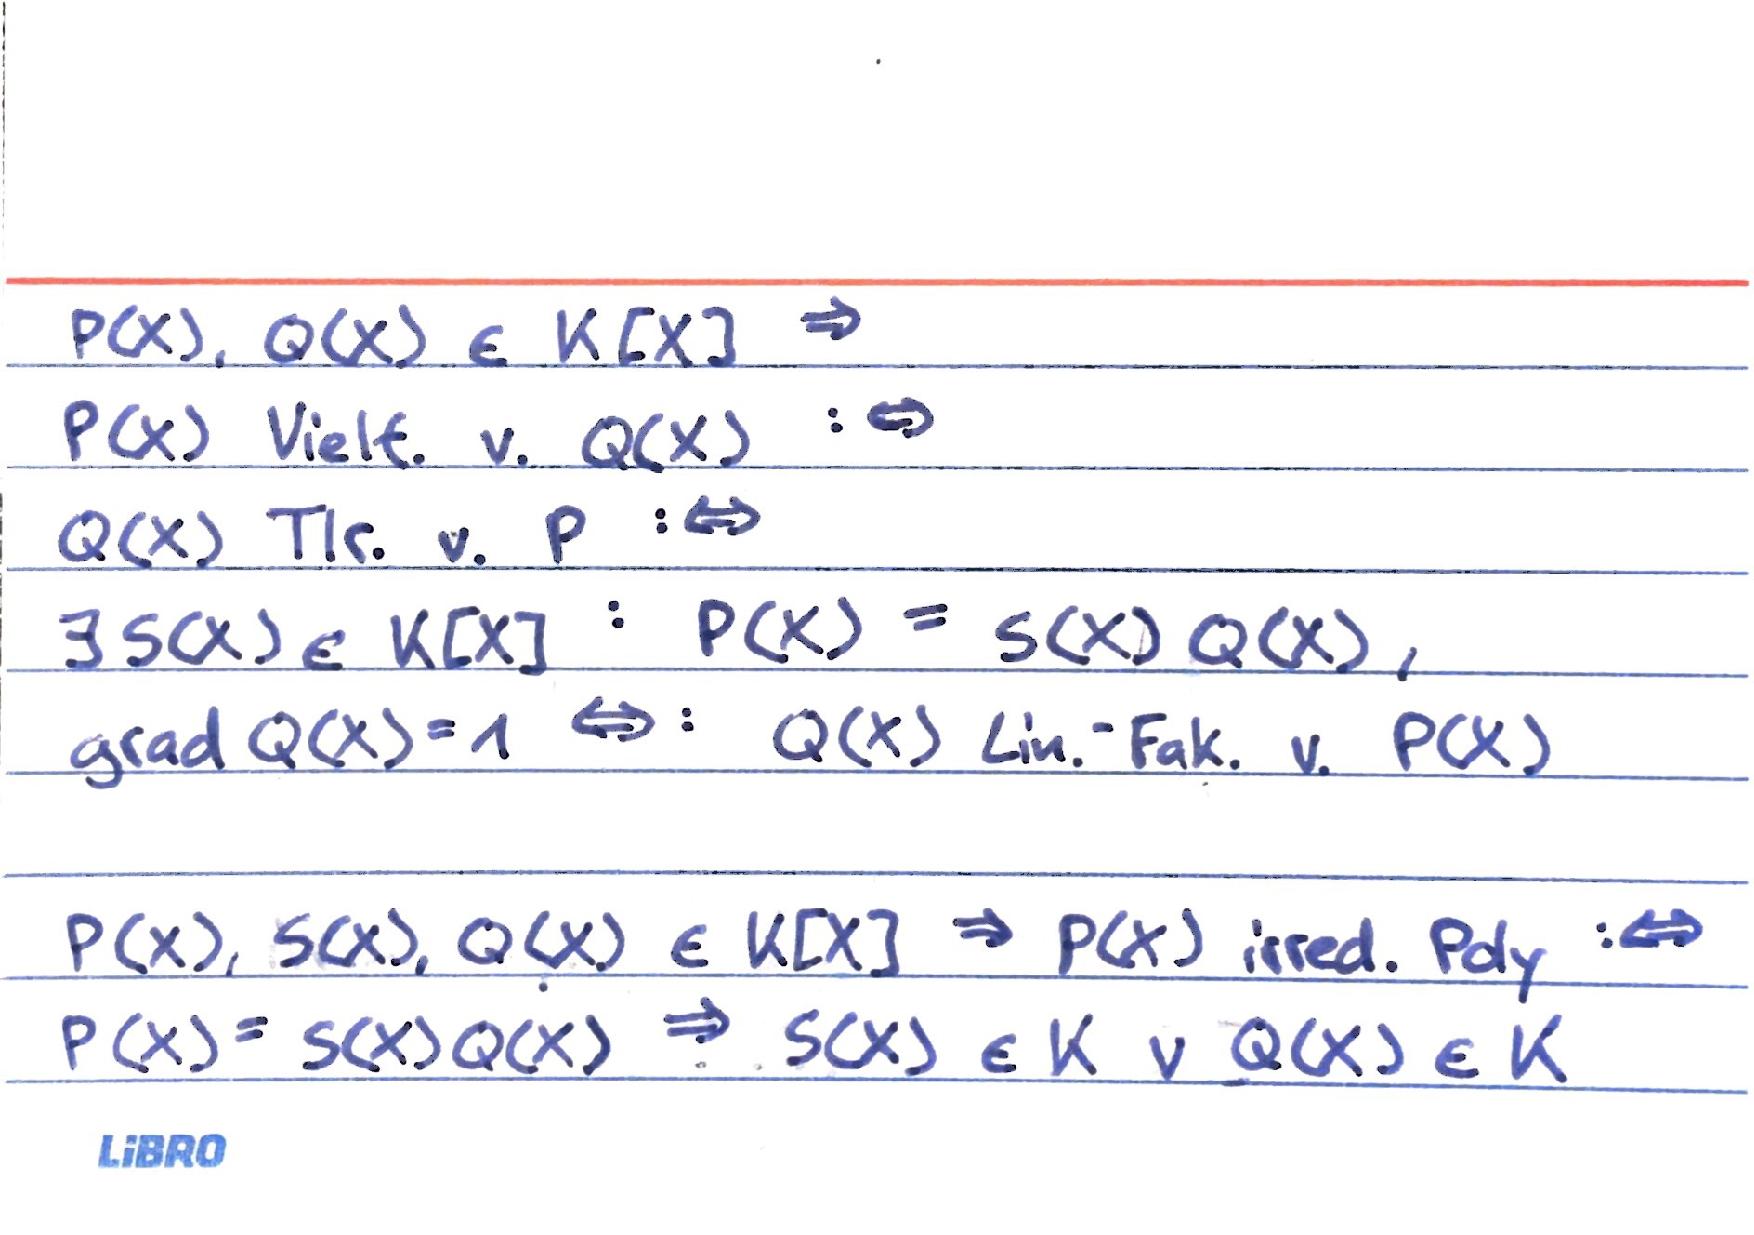 P(X), Q(X) ∈ K[X] ⇒
P(X) Vielf. v. Q(X) :⇔
Q(X) Tlr. v. P :⇔
∃ S(X) ∈ K[X] : P(X) = S(X) Q(X),
grad Q(X) = 1 ⇔: Q(X) Lin.-Fak. v. P(X)
P(X), S(X), Q(X) ∈ K[X] ⇒ P(X) irred. Poly :⇔
P(X) = S(X) Q(X) ⇒ S(X) ∈ K ∨ Q(X) ∈ K
LiBRO